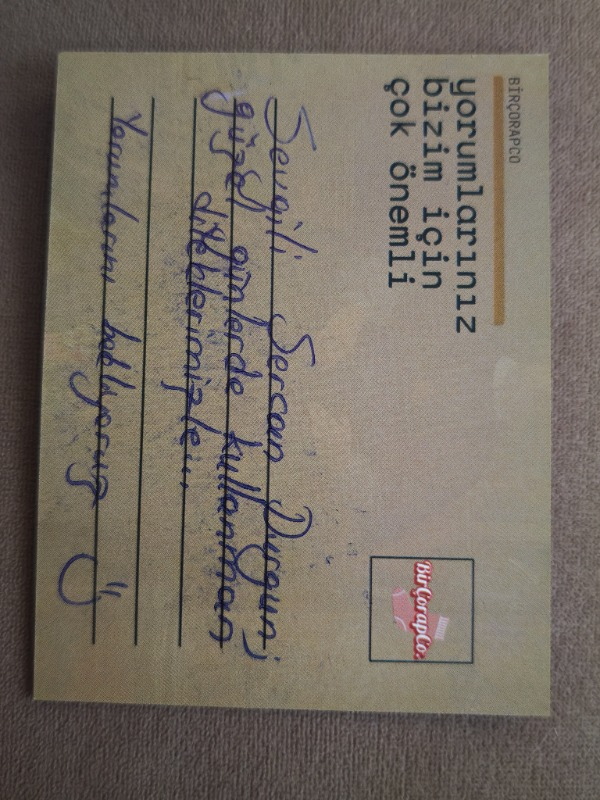 BİRÇORAPCO
yorumlarınız
bizim için
çok önemli
BirÇorapCo.
Sevgili Sercan Durgun;
güzel günlerde kullanman
dileklerimizle...
Yorumlarını bekliyoruz